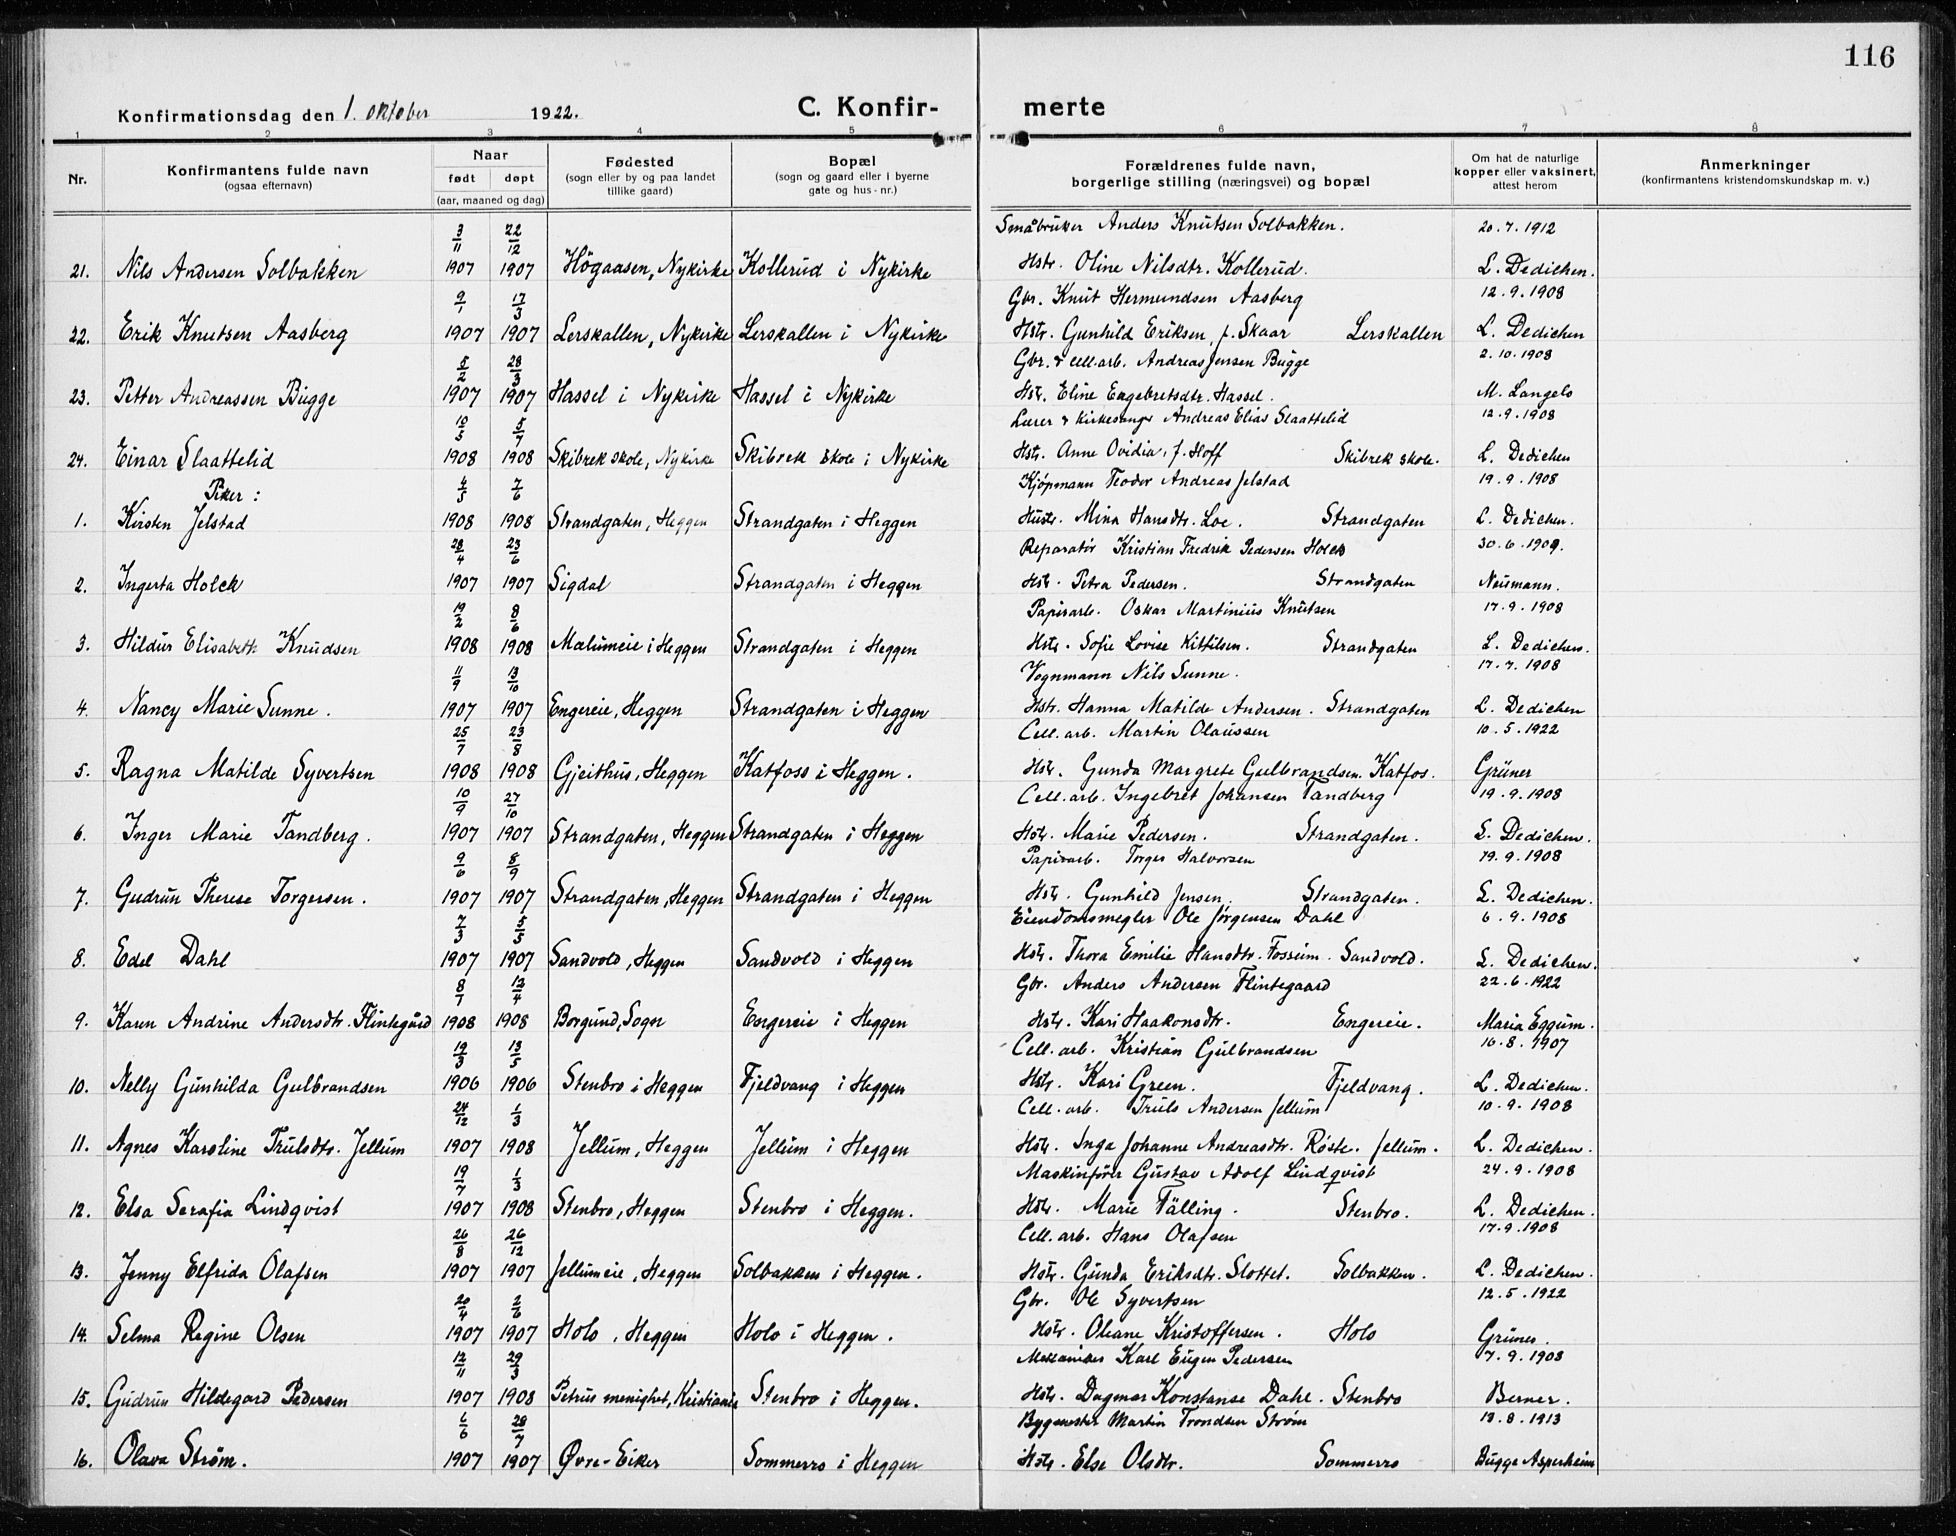 116
Konfirmationsdag den 1. oktober 1922. C. Konfir- merte
1 2 3 4 5 6 7 8
Nr. Konfirmantens fulde navn (ogsaa efternavn) Naar født døpt (aar, maaned og dag) Fødested (sogn eller by og paa landet tillike gaard) Bopæl (sogn og gaard eller i byerne gate og hus-nr.) Forældrenes fulde navn, borgerlige stilling (næringsvei) og bopæl Om hat de naturlige kopper eller vaksinert, attest herom Anmerkninger (konfirmantens kristendomskundskap m. v.)
3/11 22/12 Småbruker Anders Knutsen Solbakken. 20.7.1912
21. Nils Andersen Solbakken 1907 1907 Högaasen, Nykirke Kollerud i Nykirke Hstr. Oline Nilsdtr. Kollerud. L. Dedichen.
9/1 17/3 Gbr. Knut Hermundsen Aasberg 12.9.1908
22. Erik Knutsen Aasberg 1907 1907 Lerskallen, Nykirke Lerskallen i Nykirke Hstr. Gunhild Eriksen, f. Skaar Lerskallen L. Dedichen
5/2 28/3 Gbr. & cell.arb. Andreas Jensen Bugge 2.10.1908
23. Petter Andreassen Bugge 1907 1907 Hassel i Nykirke Hassel i Nykirke Hstr. Eline Engebretsdtr. Hassel. M. Langelo
10/5 5/7 Lærer & kirkesanger Andreas Elias Slaattelid 12.9.1908
24. Einar Slaattelid 1908 1908 Skibrek skole, Nykirke Skibrek skole i Nykirke Hstr. Anne Ovidia, f. Hoff Skibrek skole. L. Dedichen
Piker: 4/5 7/6 Kjøpmann Teodor Andreas Jelstad 19.9.1908
1. Kirsten Jelstad 1908 1908 Strandgaten, Heggen Strandgaten i Heggen Hustr. Mina Hansdtr. Loe. Strandgaten L. Dedichen.
28/4 23/6 Reparatør Kristian Fredrik Pedersen Holck 30.6.1909.
2. Ingerta Holck 1907 1907 Sigdal Strandgaten i Heggen Hstr. Petra Pedersen. Strandgaten Neumann.
19/2 8/6 Papirarb. Oskar Martinius Knutsen 17.9.1908
3. Hildur Elisabeth Knudsen 1908 1908 Mælumeie i Heggen Strandgaten i Heggen Hstr. Sofie Lovise Kittilsen. Strandgaten L. Dedichen.
11/9 13/10 Vognmann Nils Sunne. 17.7.1908
4. Nancy Marie Sunne. 1907 1907 Engereie, Heggen Strandgaten i Heggen Hstr. Hanna Matilde Andersen. Strandgaten L. Dedichen
25/7 23/8 Cell.arb. Martin Olaussen 10.5.1922
5. Ragna Matilde Syvertsen 1908 1908 Gjeithus, Heggen Katfoss i Heggen. Hstr. Gunda Margrete Gulbrandsen. Katfos. Grüner
10/9 27/10 Cell.arb. Ingebret Johansen Tandberg 19.9.1908
6. Inger Marie Tandberg. 1907 1907 Strandgaten, Heggen Strandgaten i Heggen Hstr. Marie Pedersen. Strandgaten. L. Dedichen.
9/6 8/9 Papirarb. Torger Halvorsen 19.9.1908
7. Gudrun Therese Torgersen. 1907 1907 Strandgaten, Heggen Strandgaten i Heggen Hstr. Gunhild Jensen. Strandgaten. L. Dedichen.
7/3 5/5 Eiendomsmegler Ole Jørgensen Dahl 6.9.1908
8. Edel Dahl 1907 1907 Sandvold, Heggen Sandvold i Heggen Hstr. Thora Emilie Hansdtr. Fosseim. Sandvold. L. Dedichen.
8/7 12/4 Gbr. Anders Andersen Flintegaard 22.6.1922
9. Karen Andrine Andersdtr. Flintegård 1908 1908 Borgund, Sogn Engereie i Heggen Hstr. Kari Haakonsdtr. Engereie. Maria Eggum.
19/3 13/5 Cell.arb. Kristian Gulbrandsen 16.8.1907
10. Nelly Gunhilda Gulbrandsen 1906 1906 Stenbro i Heggen Fjeldvang i Heggen Hstr. Kari Green. Fjeldvang. L. Dedichen.
24/12 1/3 Cell.arb. Truls Andersen Jellum 10.9.1908
11. Agnes Karoline Trulsdtr. Jellum 1907 1908 Jellum, Heggen Jellum i Heggen Hstr. Inga Johanne Andreasdtr. Røste. Jellum. L. Dedichen.
19/7 1/3 Maskinfører Gustav Adolf Lindqvist 24.9.1908
12. Elsa Serafia Lindqvist 1907 1908 Stenbro, Heggen Stenbro i Heggen. Hstr. Marie Tälling. Stenbro. L. Dedichen.
26/8 26/12 Cell.arb. Hans Olafsen 17.9.1908
13. Jenny Elfrida Olafsen 1907 1907 Jellumeie, Heggen Solbakken i Heggen. Hstr. Gunda Eriksdtr. Slottet. Solbakken. L. Dedichen.
20/4 2/6 Gbr. Ole Syvertsen 12.5.1922
14. Selma Regine Olsen 1907 1907 Holo, Heggen Holo i Heggen. Hstr. Oleane Kristoffersen. Holo Grüner.
12/11 29/3 Mekaniker Karl Eugen Pedersen 7.9.1908
15. Gudrun Hildegard Pedersen 1907 1908 Petrus menighet, Kristiania Stenbro i Heggen. Hstr. Dagmar Konstanse Dahl. Stenbro Berner.
6/6 28/7 Bygmester Martin Trondsen Strøm 18.8.1913
16. Olava Strøm. 1907 1907 Øvre-Eiker Sommerro i Heggen Hstr. Else Olsdtr. Sommerro Bugge Asperheim